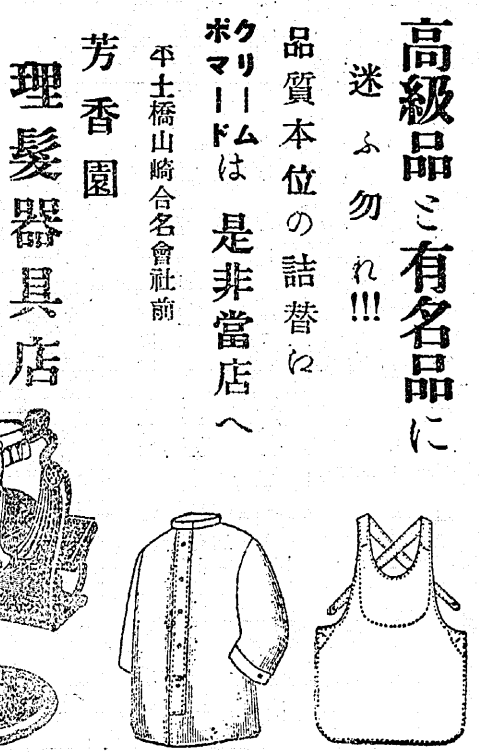 高級品と有名品に
迷ふ勿れ!!!
品質本位の詰替は
クリーム
ポマードは 是非當店へ
平土橋山崎合名會社前
芳香園
理髮器具店